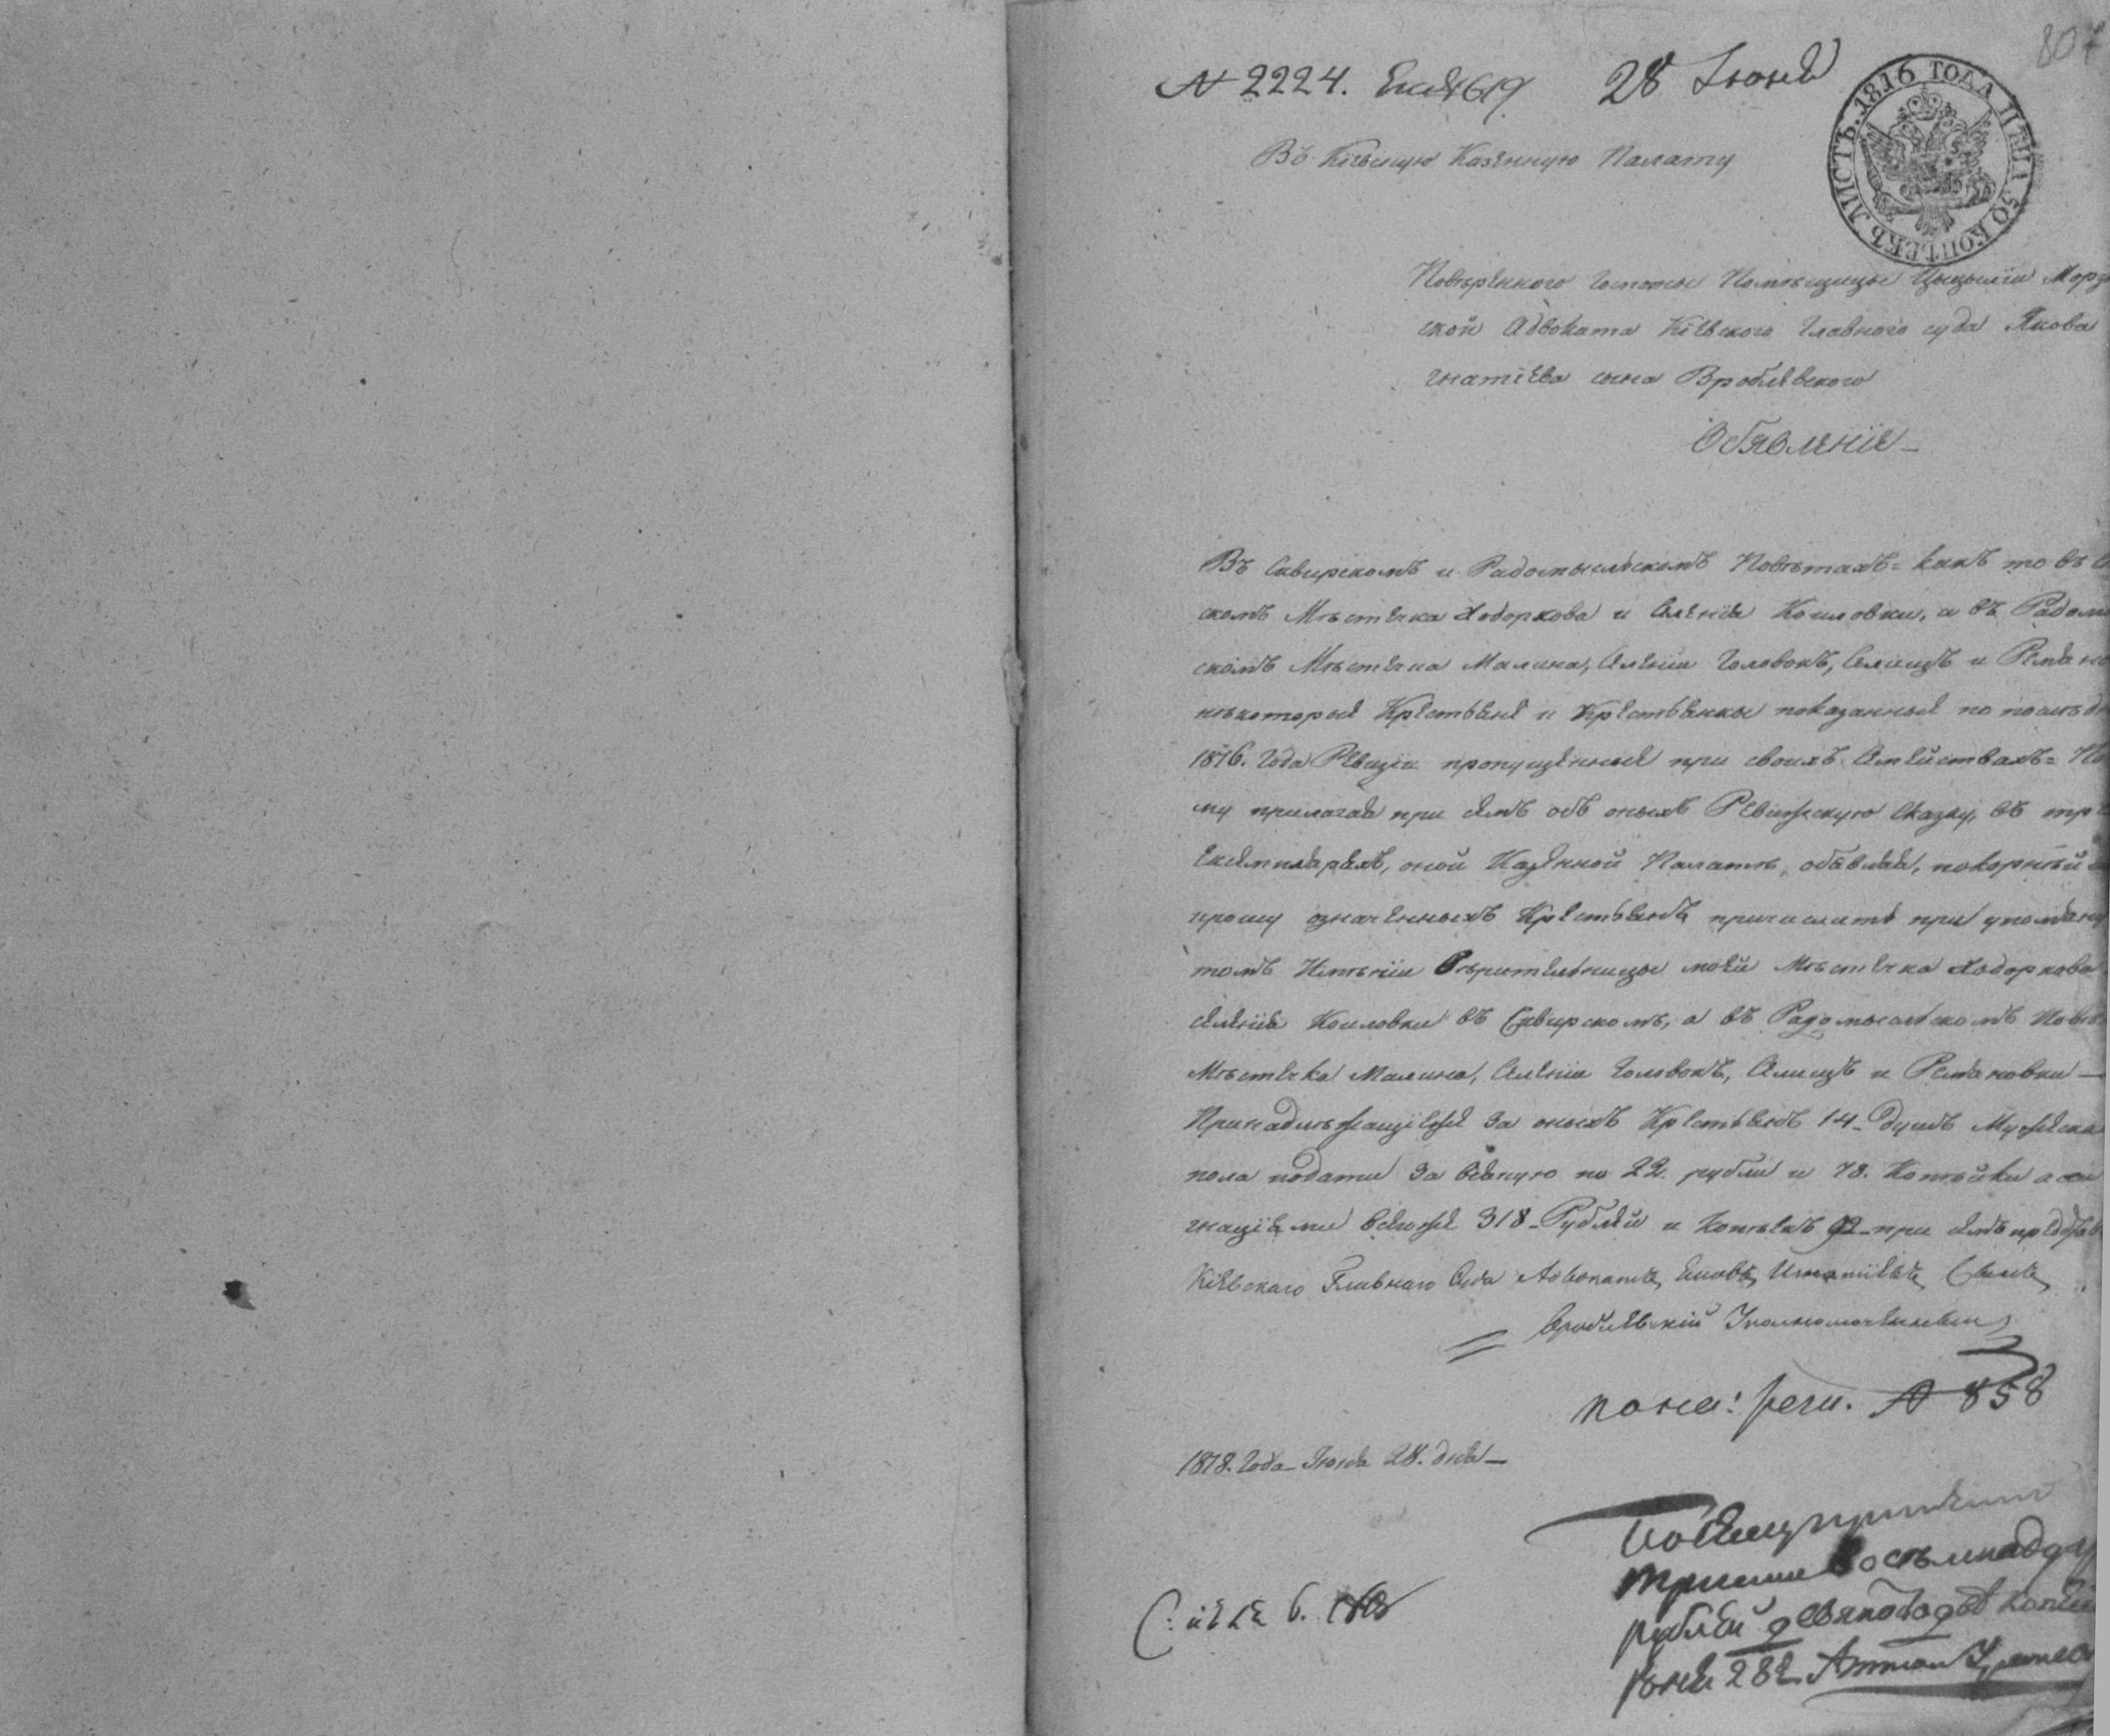 807
№ 2224. 28 Июня
ЛИСТЪ. 1816 ГОДА ЦѢНА 50 КОПѢЕКЪ
Въ Кіевскую Казенную Палату
Повѣреннаго Помѣщицы Морз
ской Адвоката Кіевского Главного суда Якова
гнатіева сына Вроблевского
Объявленіе
Въ Сквирскомъ и Радомысльскомъ Повѣтахъ = какъ то въ С
скомъ Мѣстечка Ходоркова и Селенія Кошловки, а въ Радомы
скомъ Мѣстечка Малина, Селеніи Головокъ, Селищъ и Рема но
нѣкоторыя Крестьяне и Крестьянки показанные по послѣдн
1816. Года Ревизіи пропущенные при своихъ Семействахъ = По
му прилагая при семъ объ оныхъ Ревижскую Сказку, въ тре
екземплярахъ, оной Казенной Палатѣ, объявляя, покорнѣй
прошу означенныхъ Крестьянъ причислить при упомяну
томъ Имѣніи вѣрительницы моей Мѣстечка Ходоркова
селенія Кошловки въ Сквирскомъ, а въ Радомысльскомъ Повѣ
Мѣстечка Малина, Селеніи Головокъ, Селищъ и Ремановки —
Принадлежащіеже за оныхъ Крестьянъ 14 душъ Мужеска
пола подати за всякую по 22. рубли и 78. Копѣйки асси
гнаціями всегоже 318 Рублей и Копѣекъ 92 при семъ
Кіевскаго Главнаго Суда Адвокатъ, Яковъ, Игнатіевъ, Сынъ,
Вроблевскій
№ 858
1818. Года Июня 28. дня —
триста Восемнадца
рублей девяносто двѣ копѣй
Июня 28 Антон